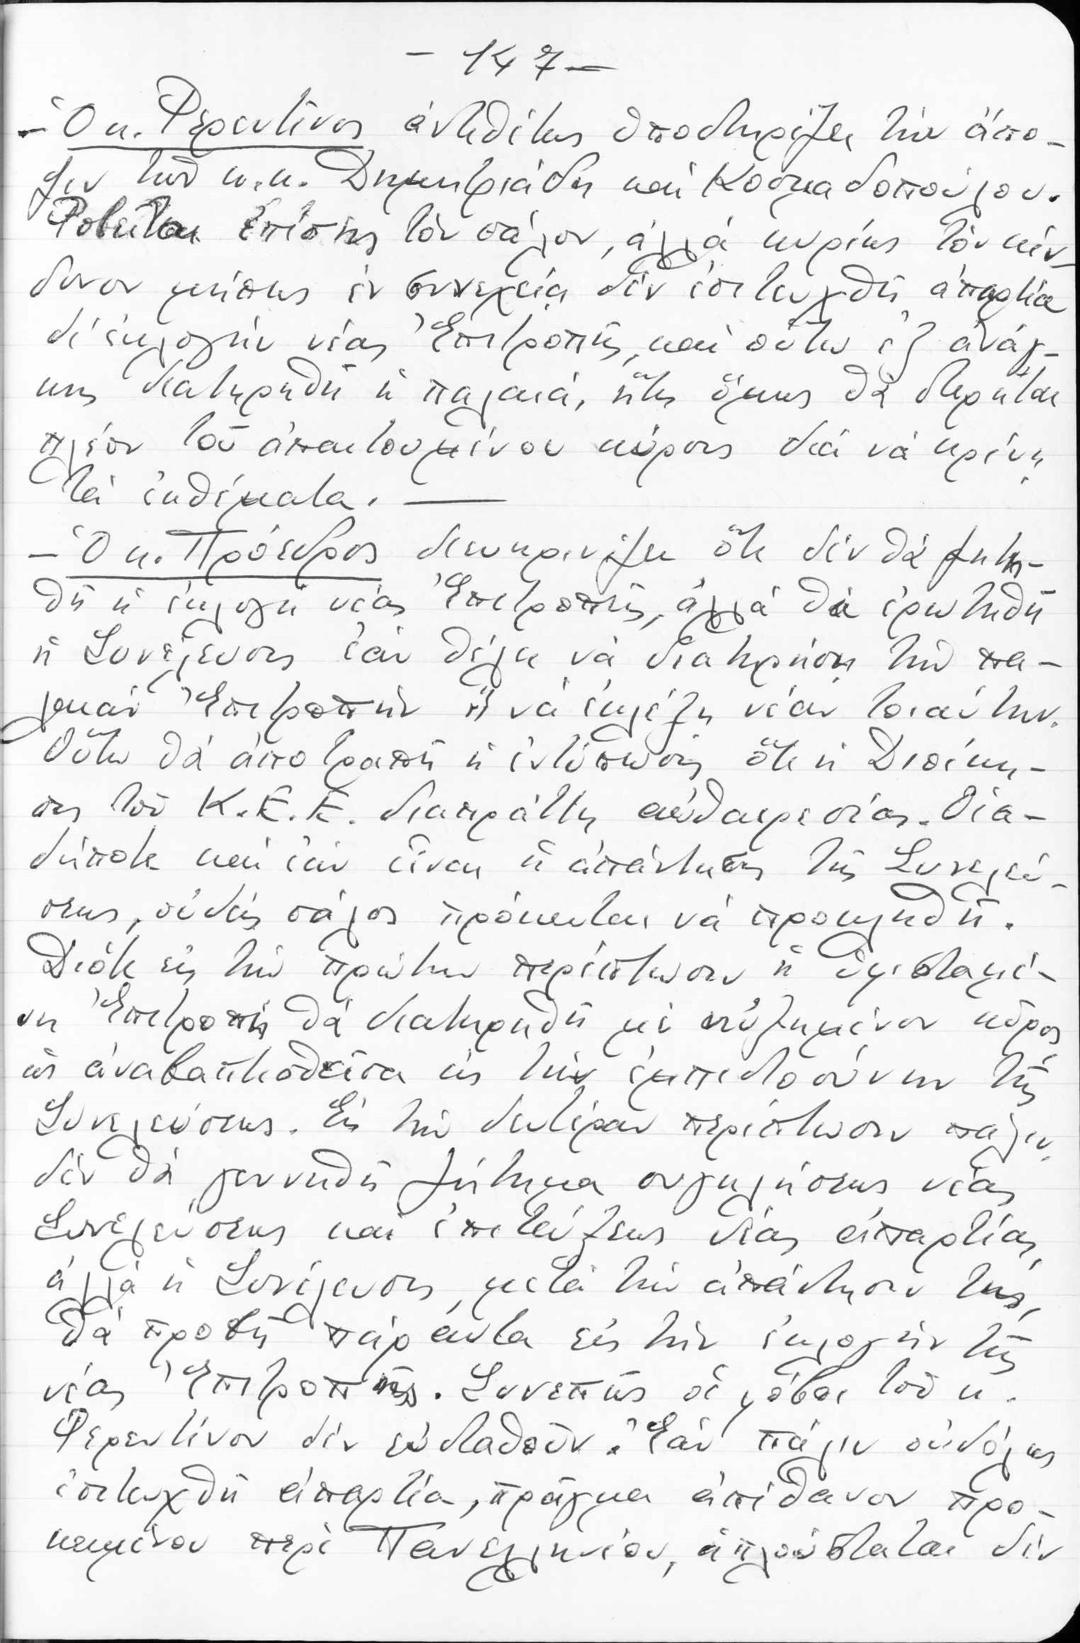 - 147 -
- Ὁ κ. Φερεντῖνος ἀντιθέτως ὑποστηρίζει τὴν ἄπο-
ψιν τῶν κ.κ. Δημητριάδη καὶ Κοσμαδοπούλου.
Φοβεῖται ἐπίσης τὸν σάλον, ἀλλά κυρίως τὸν κίν-
δυνον μήπως ἐν συνεχείᾳ δὲν ἐπιτευχθῇ ἀπαρτία
δι' ἐκλογὴν νέας Ἐπιτροπῆς, καὶ οὕτω ἐξ ἀνάγ-
κης διατηρηθῇ ἡ παλαιά, ἥτις ὅμως θὰ στερῆται
πλέον τοῦ ἀπαιτουμένου κύρους διὰ νὰ κρίνῃ
τὰ ἐκθέματα. —
- Ὁ κ. Πρόεδρος διευκρινίζει ὅτι δὲν θὰ ζητη-
θῇ ἡ ἐκλογὴ νέας Ἐπιτροπῆς, ἀλλὰ θὰ ἐρωτηθῇ
ἡ Συνέλευσις ἐὰν θέλῃ νὰ διατηρήσῃ τὴν πα-
λαιὰν Ἐπιτροπὴν ἢ νὰ ἐκλέξῃ νέαν τοιαύτην.
Οὕτω θὰ ἀποτραπῇ ἡ ἐντύπωσις ὅτι ἡ Διοίκη-
σις τοῦ Κ.Ε.Ε. διαπράττῃ αὐθαιρεσίας. Οἱα-
δήποτε καὶ ἐὰν εἶναι ἡ ἀπάντησις τῆς Συνελεύ-
σεως, οὐδεὶς σάλος πρόκειται νὰ προκληθῇ.
Διότι εἰς τὴν πρώτην περίπτωσιν ἡ ὑφισταμέ-
νη Ἐπιτροπὴ θὰ διατηρηθῇ μὲ ηὐξημένον κῦρος
ὡς ἀναβαπτισθεῖσα εἰς τὴν ἐμπιστοσύνην τῆς
Συνελεύσεως. Εἰς τὴν δευτέραν περίπτωσιν πάλιν,
δὲν θὰ γεννηθῇ ζήτημα συγκλήσεως νέας
Συνελεύσεως καὶ ἐπιτεύξεως νέας ἀπαρτίας,
ἀλλὰ ἡ Συνέλευσις, μετὰ τὴν ἀπάντησιν της,
θὰ προβῇ πάραυτα εἰς τὴν ἐκλογὴν τῆς
νέας Ἐπιτροπῆς. Συνεπῶς οἱ φόβοι τοῦ κ.
Φερεντίνου δὲν εὐσταθοῦν. Ἐὰν πάλιν οὐδόλως
ἐπιτευχθῇ ἀπαρτία, πρᾶγμα ἀπίθανον προ-
κειμένου περὶ Πανελληνίου, ἁπλούστατα δὲν